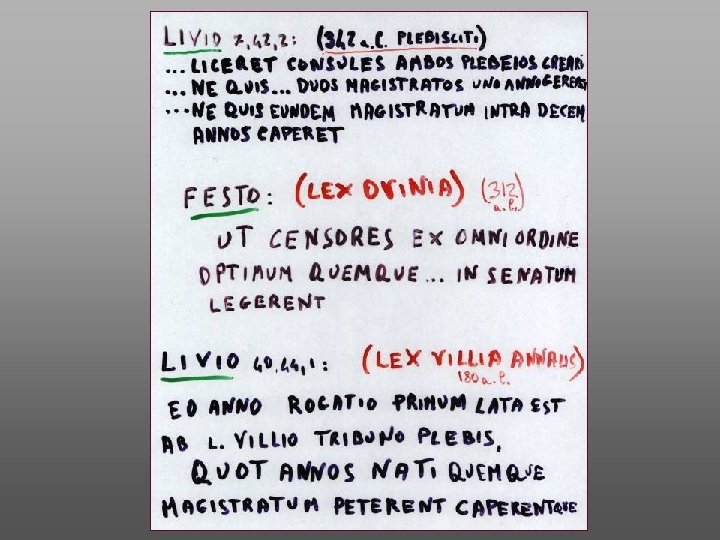 LIVIO 7,42,2: (342 a.C. PLEBISCITI)
...LICERET CONSULES AMBOS PLEBEIOS CREARI
...NE QUIS... DUOS MAGISTRATOS UNO ANNO GERERET
...NE QUIS EUNDEM MAGISTRATUM INTRA DECEM
ANNOS CAPERET
FESTO: (LEX OVINIA) (312 a.C.)
UT CENSORES EX OMNI ORDINE
OPTIMUM QUEMQUE... IN SENATUM
LEGERENT
LIVIO 40,44,1: (LEX VILLIA ANNALIS)
180 a.C.
EO ANNO ROGATIO PRIMUM LATA EST
AB L. VILLIO TRIBUNO PLEBIS,
QUOT ANNOS NATI QUEMQUE
MAGISTRATUM PETERENT CAPERENTQUE